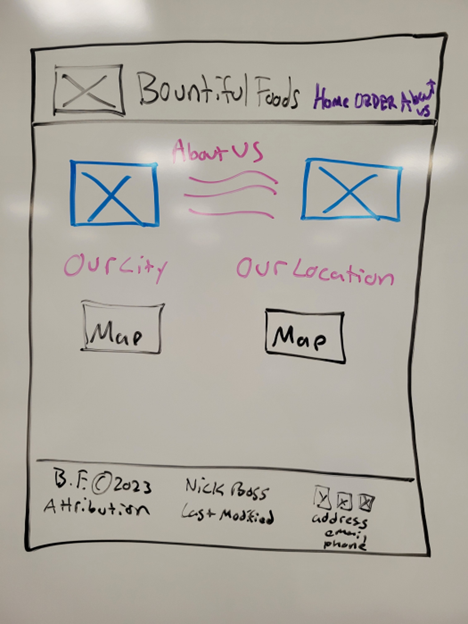 Bountiful Foods
Home ORDER About us
About US
Our City
Our Location
Map
Map
B.F. © 2023
Attribution
Nick Boss
Last Modified
address
email
phone